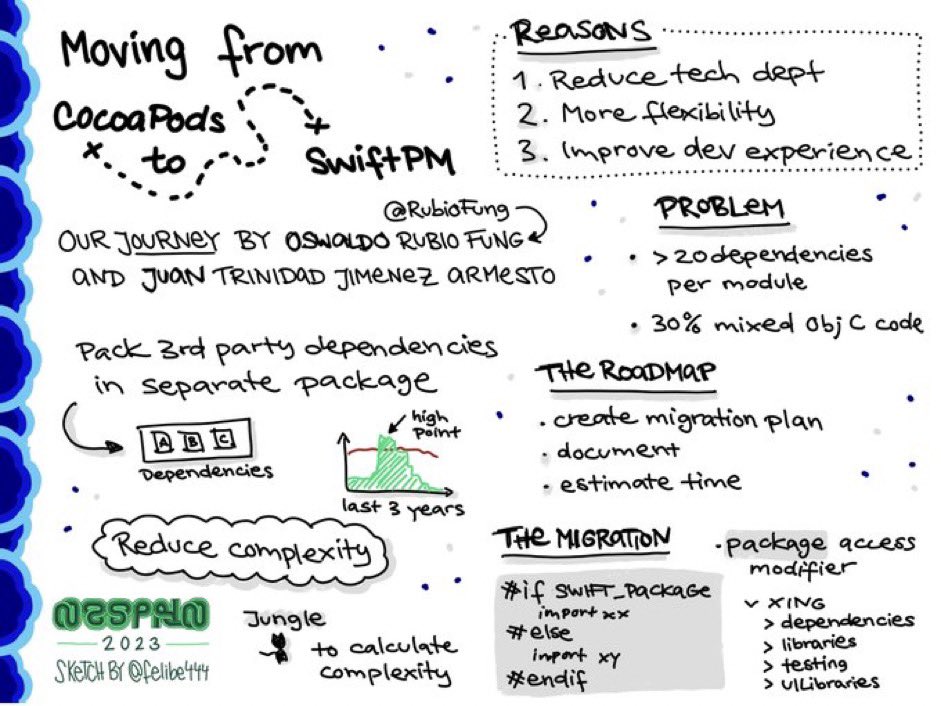 Moving from
CocoaPods
to
SwiftPM
@RubioFung
OUR JOURNEY BY OSWALDO RUBIO FUNG
AND JUAN TRINIDAD JIMENEZ ARMESTO
Reasons
1. Reduce tech dept
2. More flexibility
3. Improve dev experience
PROBLEM
• >20 dependencies
per module
• 30% mixed Obj C code
Pack 3rd party dependencies
in separate package
A B C
Dependencies
high
point
last 3 years
THE ROADMAP
• create migration plan
• document
• estimate time
Reduce complexity
THE MIGRATION
#if SWIFT_Package
import xx
#else
import xy
#endif
• package access
modifier
v XING
> dependencies
> libraries
> testing
> UILibraries
Jungle
to calculate
complexity
NSSPAIN
2023
SKETCH BY @felibe444